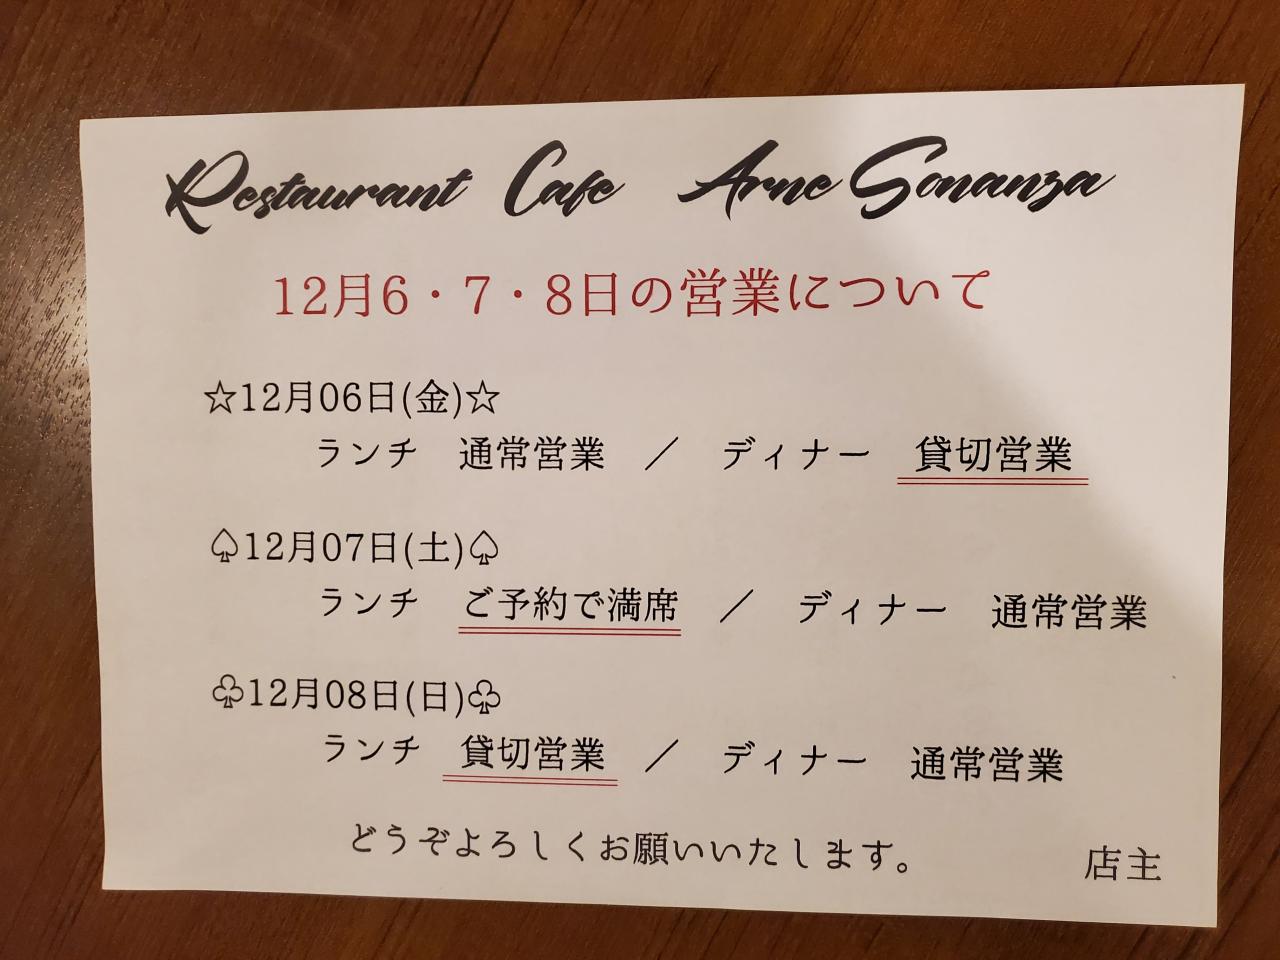 Restaurant Cafe Arne Sonanza
12月6・7・8日の営業について
☆12月06日(金)☆
ランチ 通常営業 ／ ディナー 貸切営業
♤12月07日(土)♤
ランチ ご予約で満席 ／ ディナー 通常営業
♧12月08日(日)♧
ランチ 貸切営業 ／ ディナー 通常営業
どうぞよろしくお願いいたします。
店主